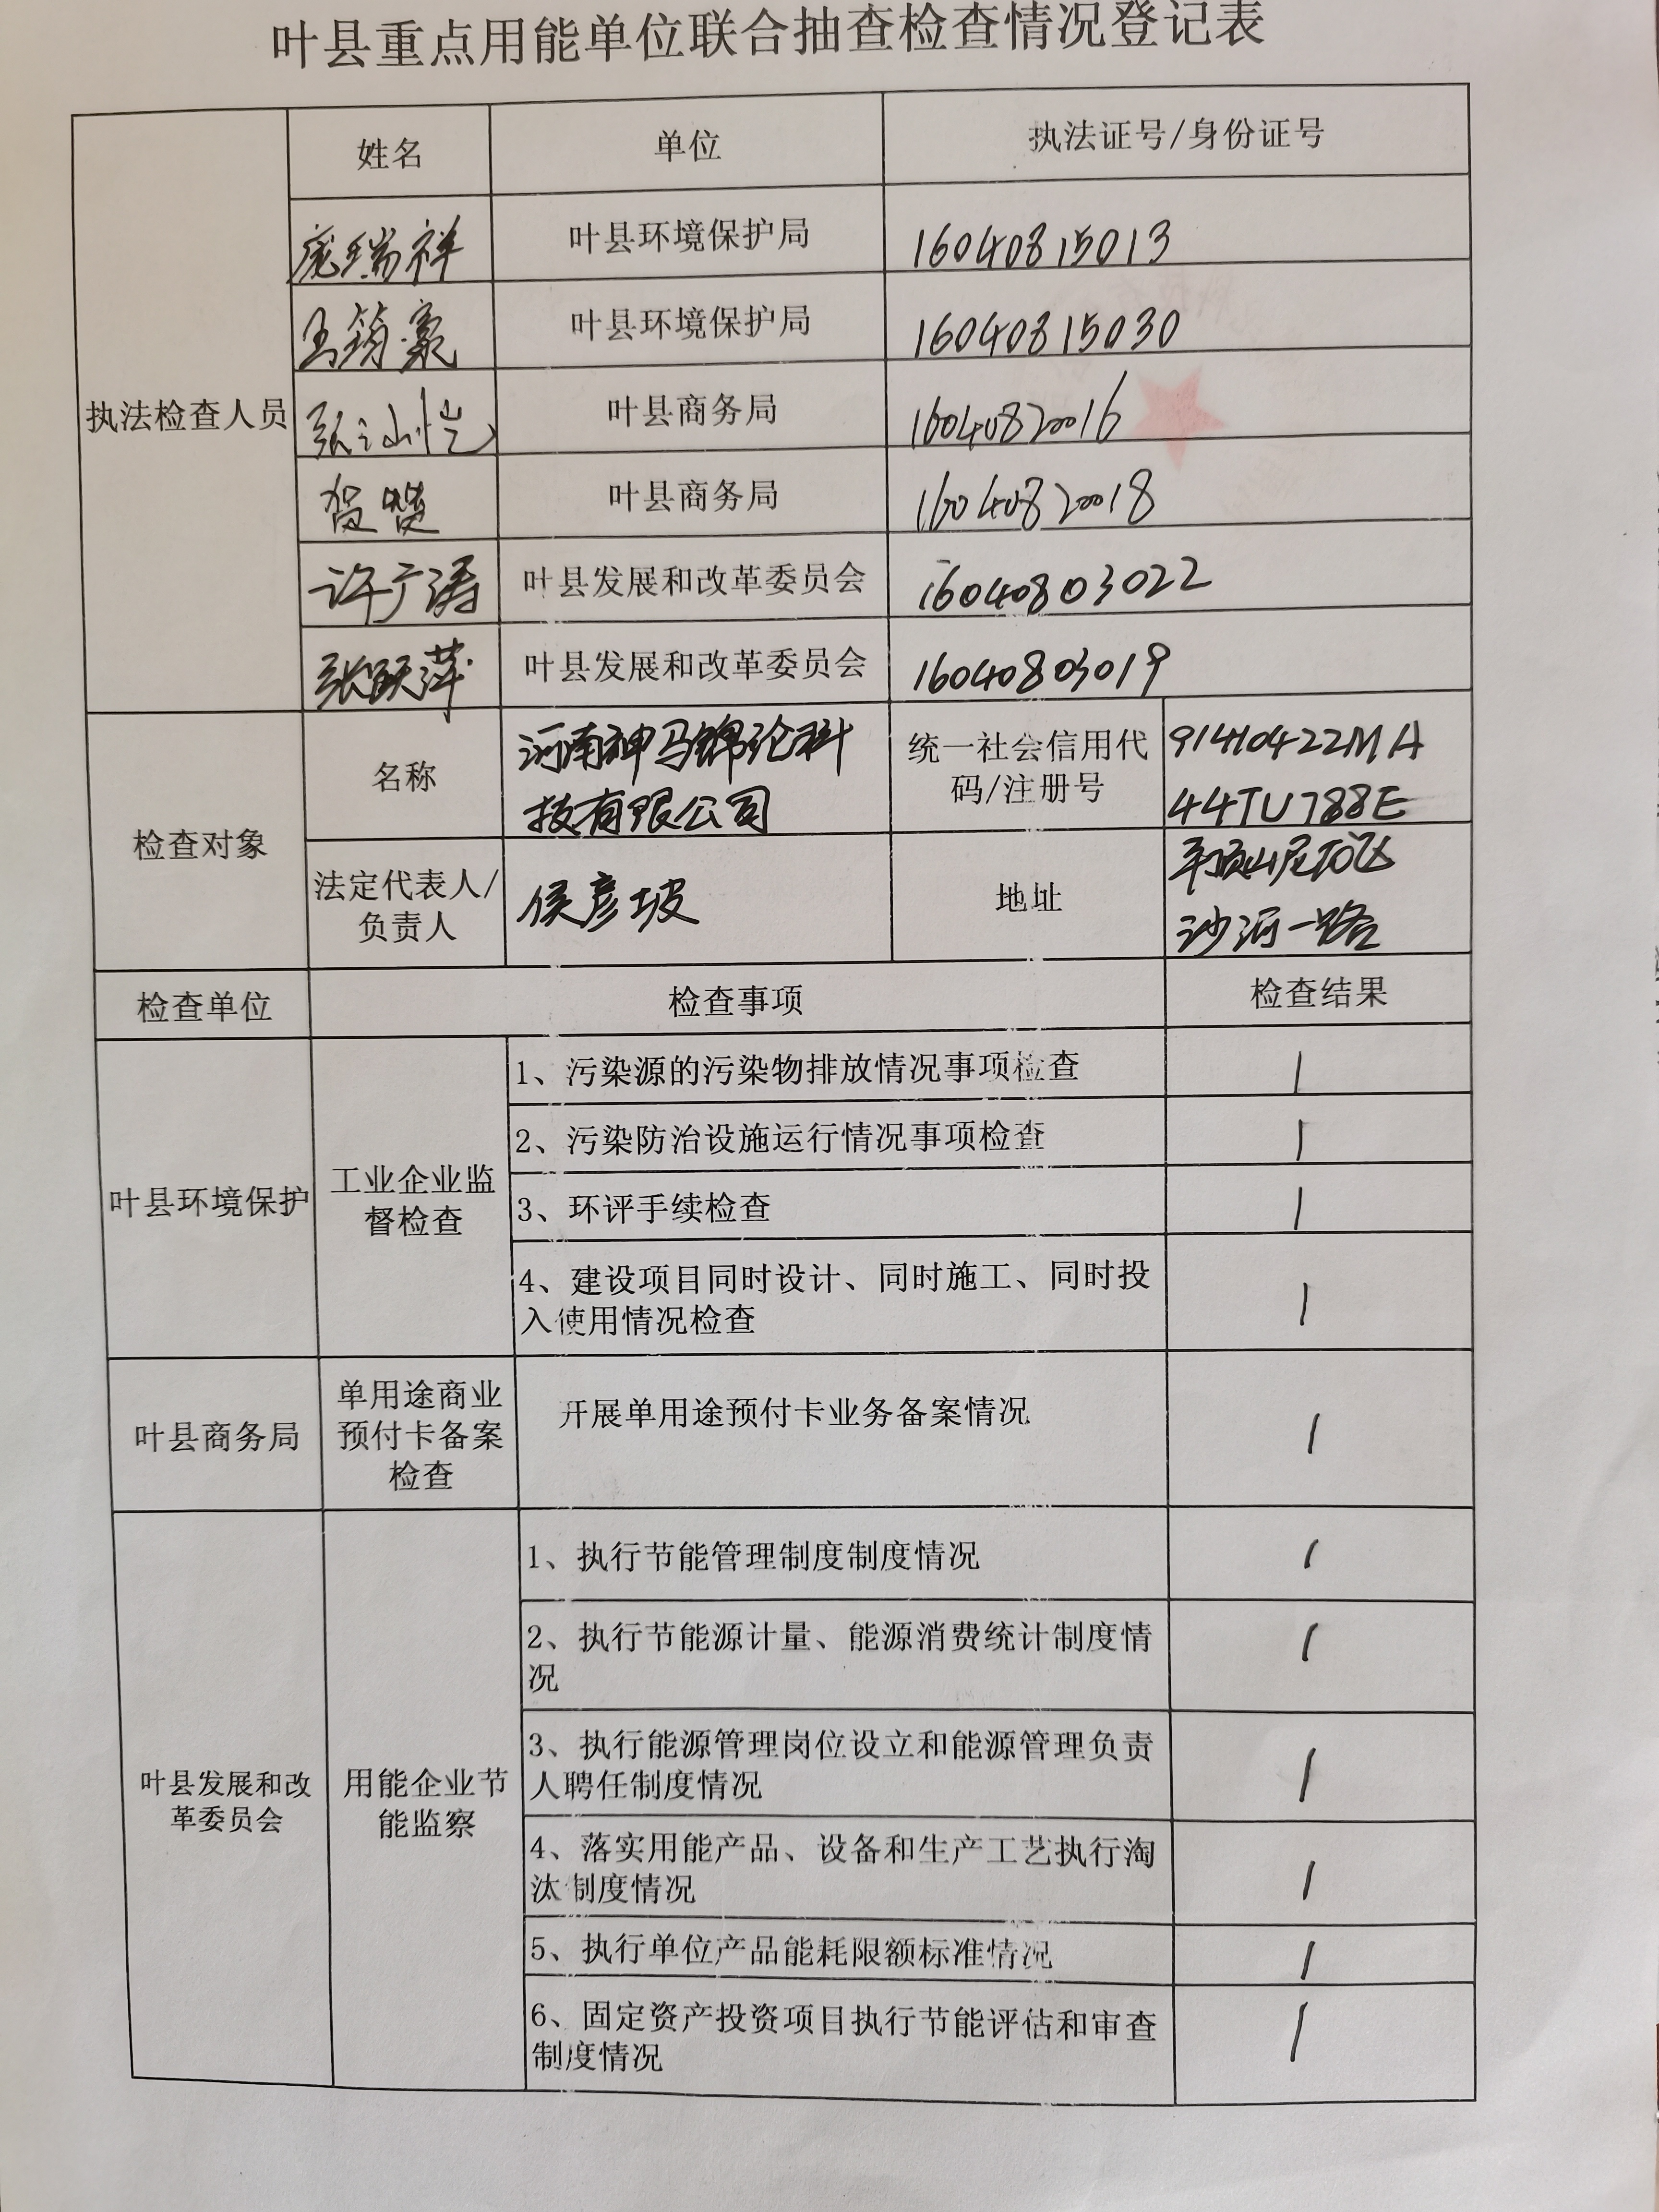 叶县重点用能单位联合抽查检查情况登记表
姓名
单位
执法证号/身份证号
执法检查人员
庞瑞祥
叶县环境保护局
16040815013
王筠豪
叶县环境保护局
16040815030
叶县商务局
16040820016
贺
叶县商务局
16040820018
许广涛
叶县发展和改革委员会
16040803022
张跃萍
叶县发展和改革委员会
16040803019
检查对象
名称
河南神马锦纶科
技有限公司
统一社会信用代
码/注册号
91410422MA
44TU788E
法定代表人/
负责人
侯彦坡
地址
平顶山尼龙
沙河一路
检查单位
检查事项
检查结果
叶县环境保护
工业企业监
督检查
1、污染源的污染物排放情况事项检查
1
2、污染防治设施运行情况事项检查
1
3、环评手续检查
1
4、建设项目同时设计、同时施工、同时投
入使用情况检查
1
叶县商务局
单用途商业
预付卡备案
检查
开展单用途预付卡业务备案情况
1
叶县发展和改
革委员会
用能企业节
能监察
1、执行节能管理制度制度情况
1
2、执行节能源计量、能源消费统计制度情
况
1
3、执行能源管理岗位设立和能源管理负责
人聘任制度情况
1
4、落实用能产品、设备和生产工艺执行淘
汰制度情况
1
5、执行单位产品能耗限额标准情况
1
6、固定资产投资项目执行节能评估和审查
制度情况
1